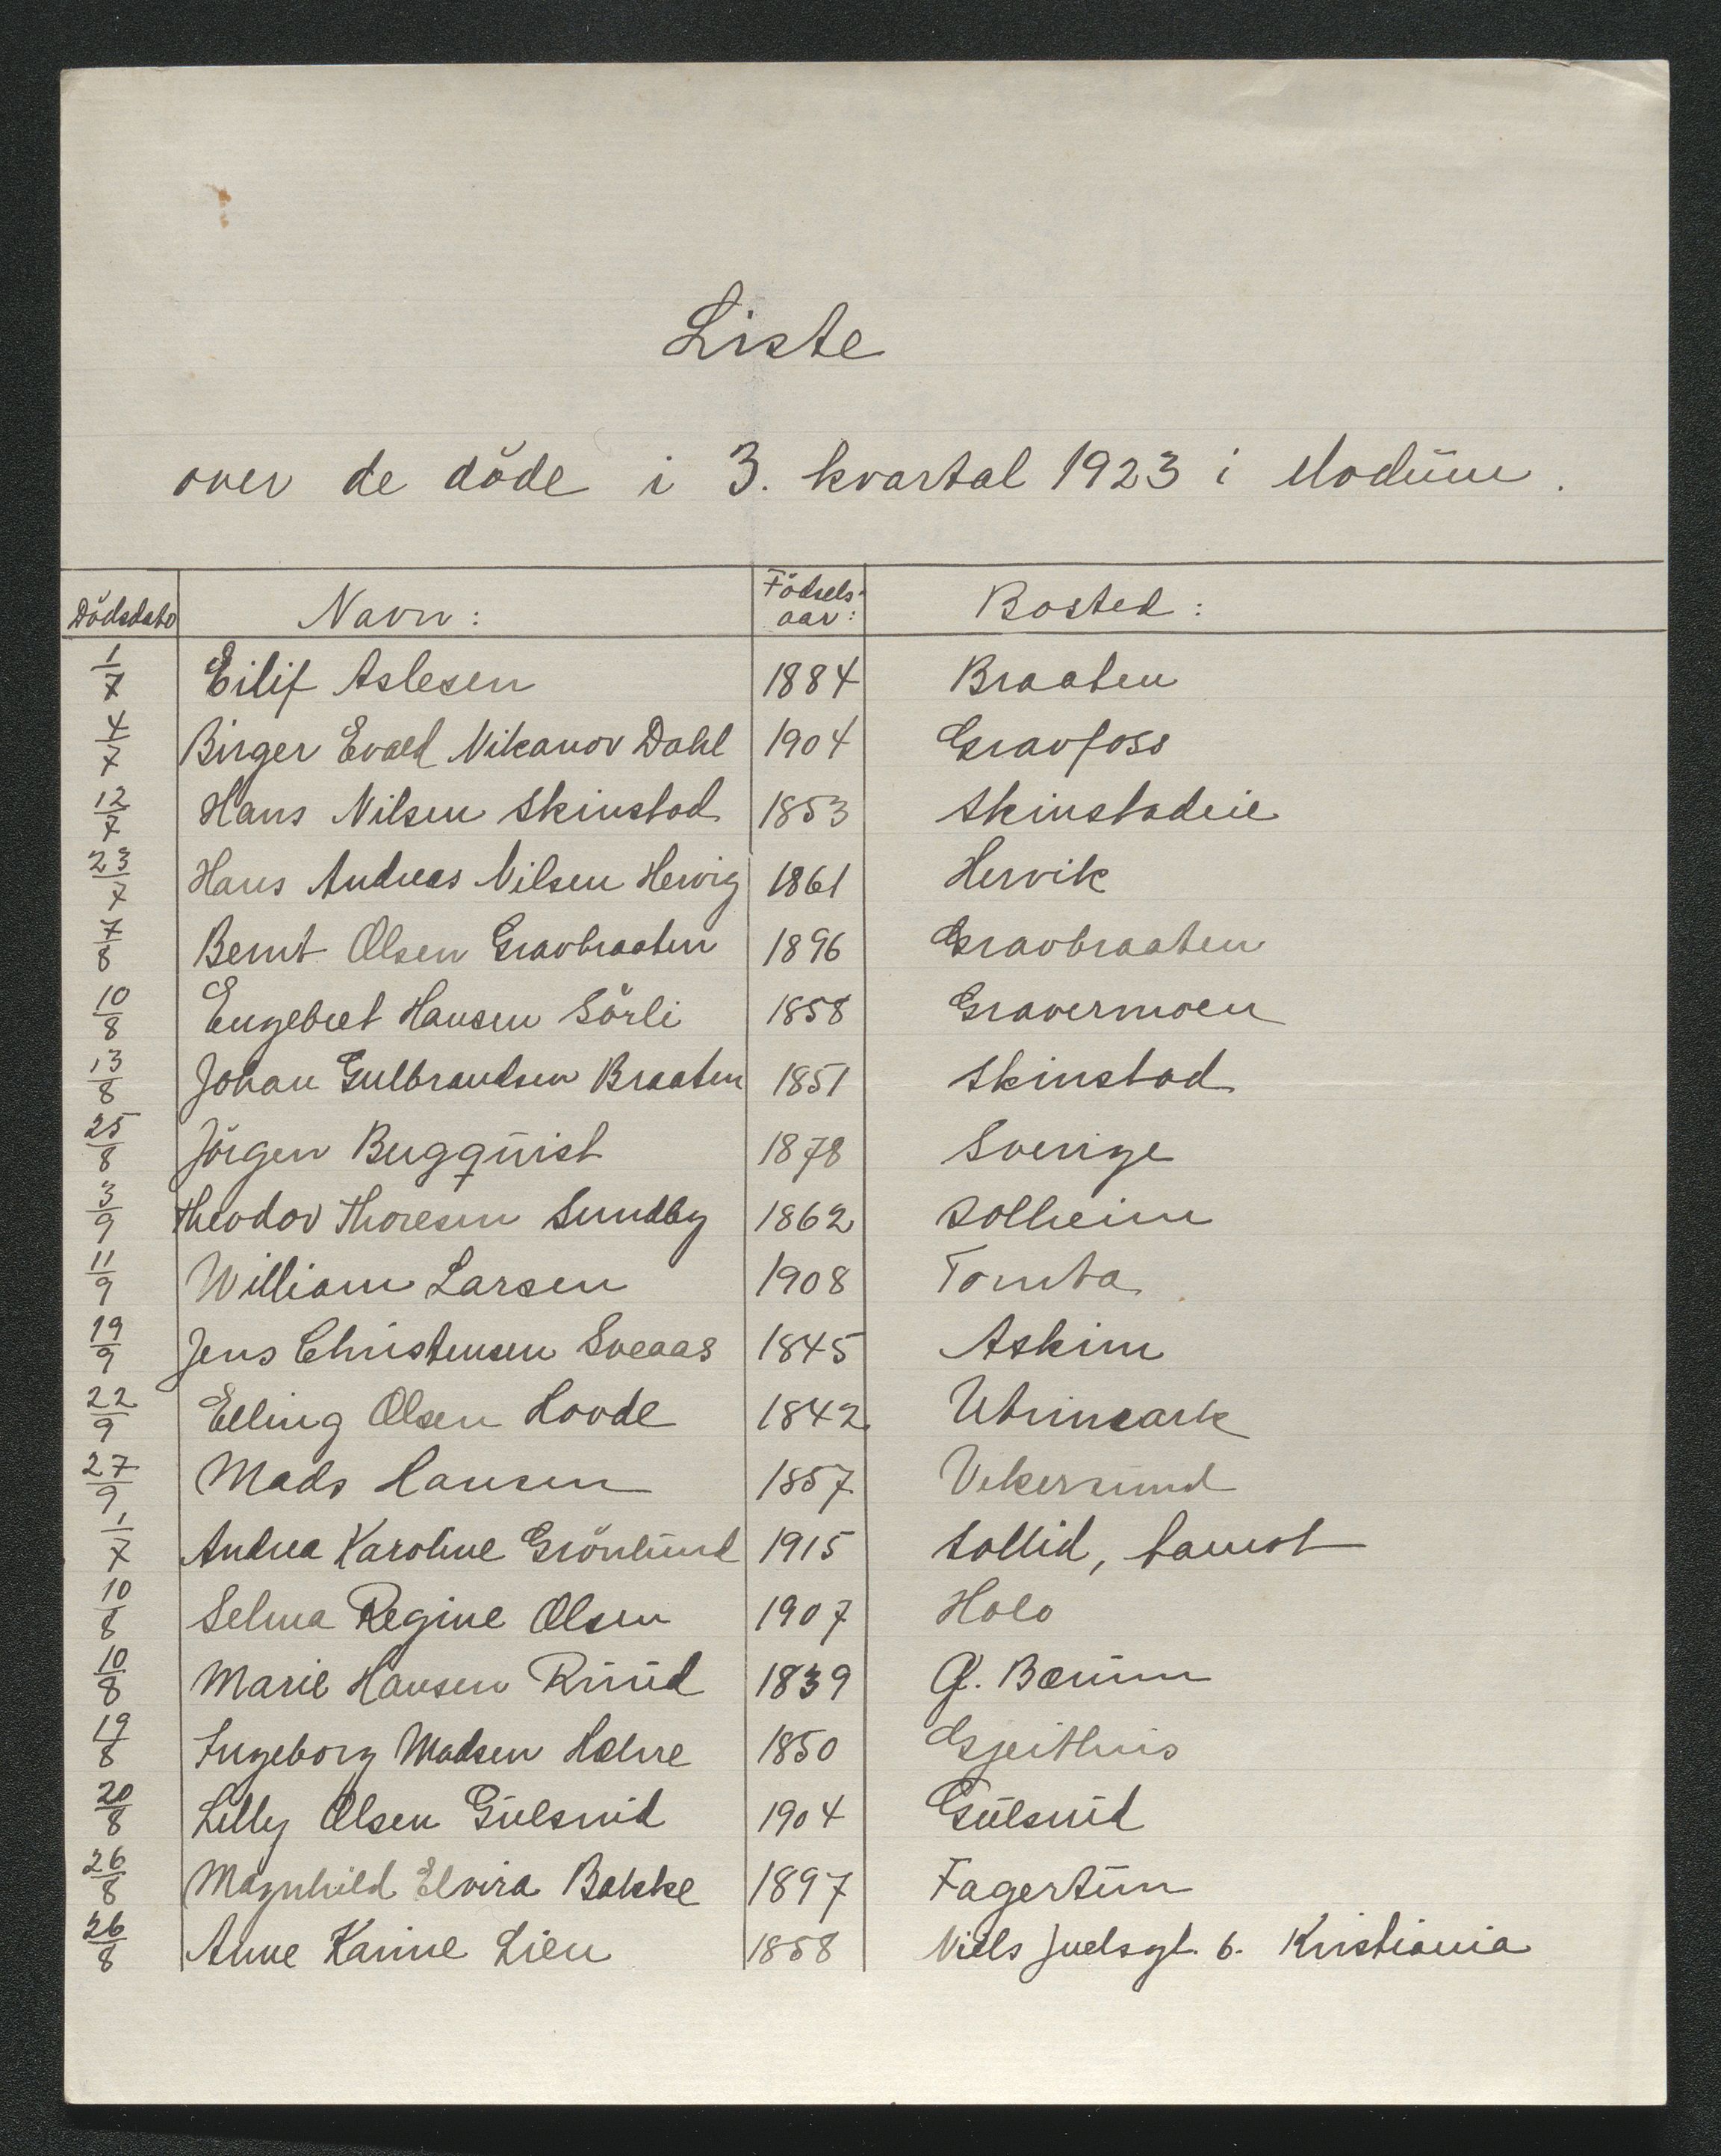 Liste
over de döde i 3. kvartal 1923 i Modum.
Dödsdato Navn: Födsels-aar: Bosted:
1/7 Eilif Aslesen 1884 Braaten
4/7 Birger Evald Nikanor Dahl 1904 Gravfoss
12/7 Hans Nilsen Skinstad 1853 Skinstadeie
23/7 Hans Andreas Nilsen Hervig 1861 Hervik
7/8 Bernt Olsen Gravbraaten 1896 Gravbraaten
10/8 Engebret Hansen Sörli 1858 Gravermoen
13/8 Johan Gulbrandsen Braaten 1851 Skinstad
25/8 Jörgen Bergquist 1878 Sverige
3/9 Theodor Thoresen Sundby 1862 Solheim
11/9 William Larsen 1908 Tomta
19/9 Jens Christensen Sveaas 1845 Askim
22/9 Elling Olsen Hovde 1842
27/9 Mads Hansen 1857 Vikersund
1/7 Andrea Karoline Grönlund 1915 Sollid,
10/8 Selma Regine Olsen 1907 Holo
10/8 Marie Hansen Ruud 1839 Bærum
19/8 Ingeborg Madsen 1850 Gjeithus
20/8 Lilly Olsen Gulsrud 1904 Gulsrud
26/8 Magnhild Elvira Bakke 1897 Fagertun
26/8 Anne Karine Lien 1858 Niels Juelsgt. 6. Kristiania